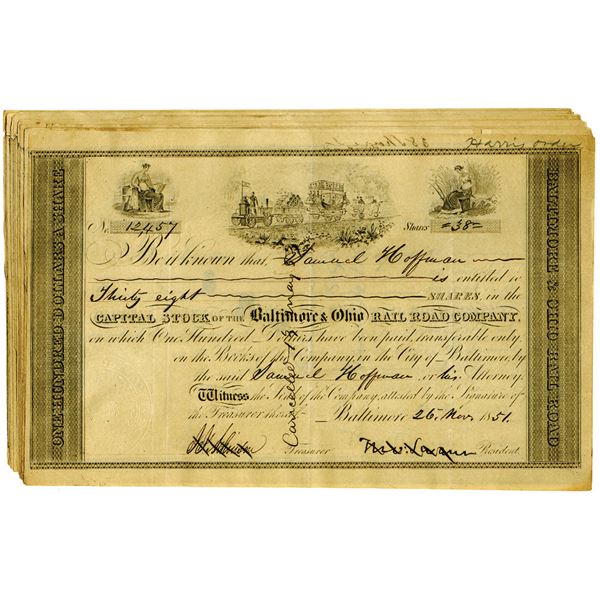 38 Shares Harris order
ONE HUNDRED DOLLARS A SHARE
BALTIMORE & OHIO RAIL ROAD
No. 12457 Shares =38=
Be it known that Samuel Hoffman
is entitled to
Thirty eight SHARES, in the
CAPITAL STOCK OF THE Baltimore & Ohio RAIL ROAD COMPANY,
on which One Hundred Dollars have been paid, transferable only
on the Books of the Company, in the City of Baltimore, by
the said Samuel Hoffman or his Attorney
Witness the Seal of the Company, attested by the Signature of
the Treasurer thereof Baltimore 26 Nov 1851.
Treasurer President.
Cancelled 13 May 52